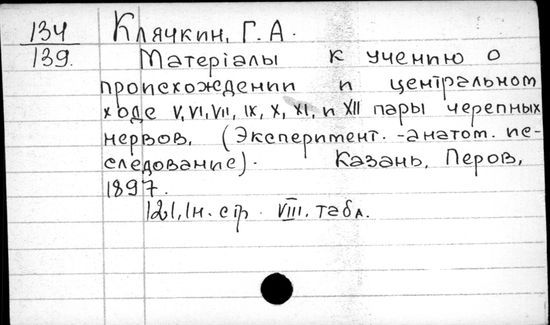 134 Клячкин, Г. А.
139. Матерiалы к учению о
происхождении и центральном
ходе V, VI, VII, IX, X, XI, и XII пары черепных
нервов. (Эксперимент.-анатом. ис-
следование). Казань, Перов,
1897.
121, 1н. стр. VIII. табл.